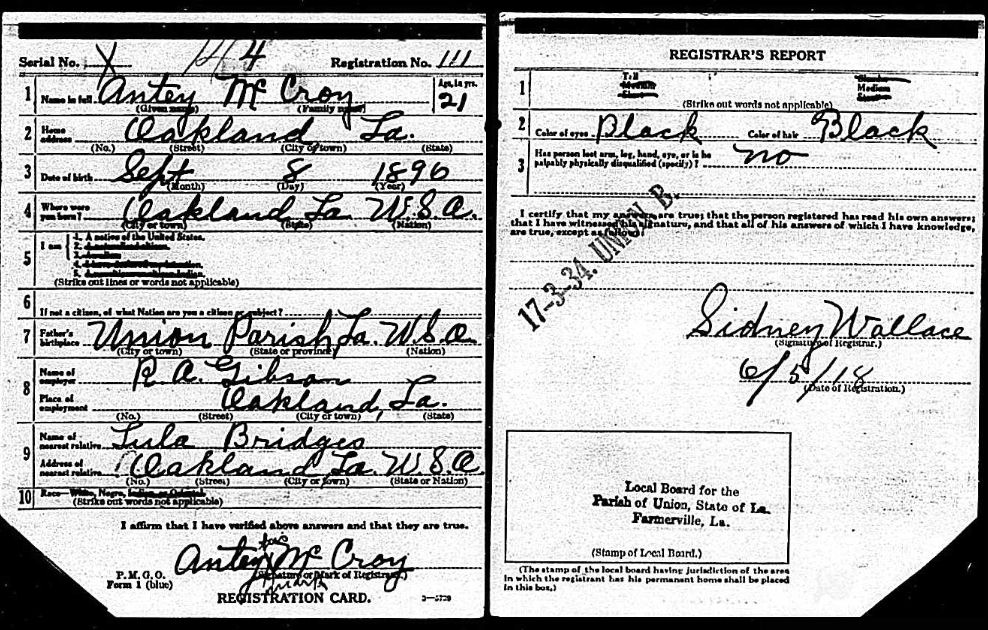 Serial No. X 144 Registration No. 111
1 Name in full Antey Mc Croy Age, in yrs. 21
(Given name) (Family name)
2 Home address Oakland La.
(No.) (Street) (City or town) (State)
3 Date of birth Sept 8 1896
(Month) (Day) (Year)
4 Where were you born? Oakland La U.S.A.
(City or town) (State) (Nation)
5 I am
1. A native of the United States.
2.
3.
4.
5.
(Strike out lines or words not applicable)
6 If not a citizen, of what Nation are you a citizen or subject?
7 Father's birthplace Union Parish La. U.S.A.
(City or town) (State or province) (Nation)
8 Name of employer R. A. Gibson
Place of employment Oakland, La.
(No.) (Street) (City or town) (State)
9 Name of nearest relative Lula Bridges
Address of nearest relative Oakland La. U.S.A.
(No.) (Street) (City or town) (State or Nation)
10 Race—White, Negro, Indian, or Oriental
(Strike out words not applicable)
I affirm that I have verified above answers and that they are true.
his
Antey Mc Croy
(Signature or Mark of Registrant.)
mark
P. M. G. O.
Form 1 (blue)
REGISTRATION CARD.
REGISTRAR'S REPORT
1 Tall Medium
Medium
(Strike out words not applicable)
2 Color of eyes Black Color of hair Black
3 Has person lost arm, leg, hand, eye, or is he palpably physically disqualified (specify)? no
I certify that my answers are true; that the person registered has read his own answers;
that I have witnessed his signature, and that all of his answers of which I have knowledge,
are true, except as follows:
17-3-34. UNION B.
Sidney Wallace
(Signature of Registrar.)
6/5/18
(Date of Registration.)
Local Board for the
Parish of Union, State of La.
Farmerville, La.
(Stamp of Local Board.)
(The stamp of the local board having jurisdiction of the area
in which the registrant has his permanent home shall be placed
in this box.)